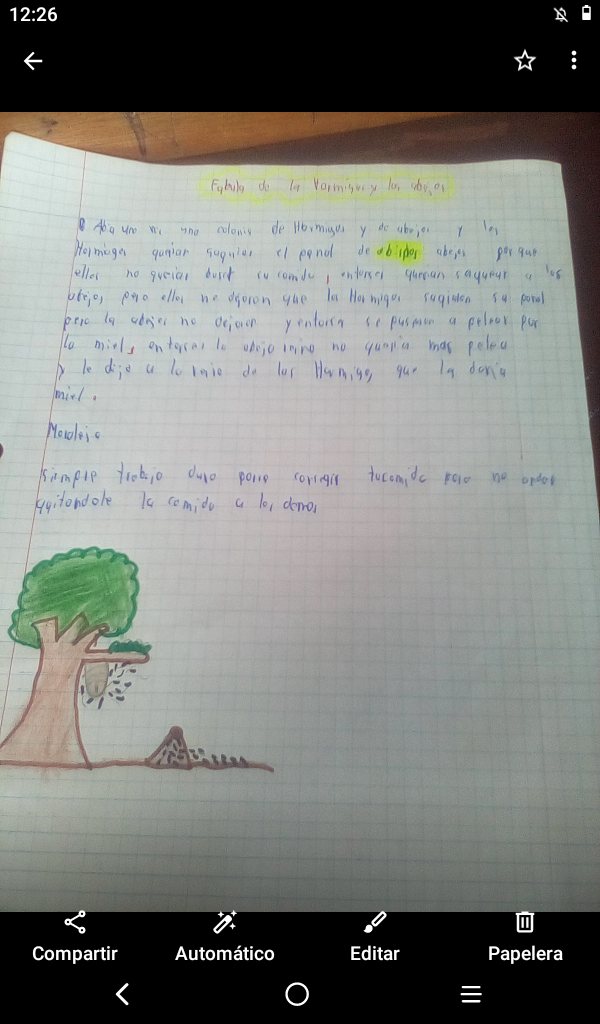 12:26
Fabula de la Hormigas y las abejas
una vez una colonia de Hormigas y de abejas y las
Hormigas querian el panal de abejas por que
ellas no querian buscar su comida, entonses querian saquear a las
abejas pero ellas no dejaron que las Hormigas su panal
pero la abejas no dejaron y entonses se pusieron a pelear por
la miel, entonses la abeja reina no queria mas pelea
y le dijo a la reina de las Hormigas que la daria
miel.
Moraleja
siempre trabaja duro para tu comida para no andar
quitandole la comida a los demas
Compartir Automático Editar Papelera